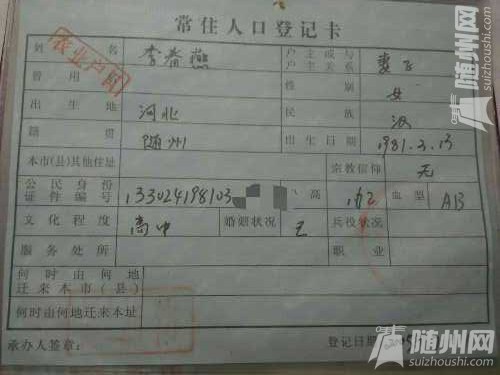 常住人口登记卡
姓名 李春燕 户主或与户主关系 妻子
农业户口
曾用 性别 女
出生地 河北 民族 汉
籍贯 随州 出生日期 1981.3.13
本市(县)其他住址 宗教信仰 无
公民身份证件编号 133024198103 高 血型 AB
文化程度 高中 婚姻状况 兵役状况
服务处所 职业
何时由何地迁来本市(县)
何时由何地迁来本址
承办人签章: 登记日期
随州网
suizhoushi.com
随州网
suizhoushi.com